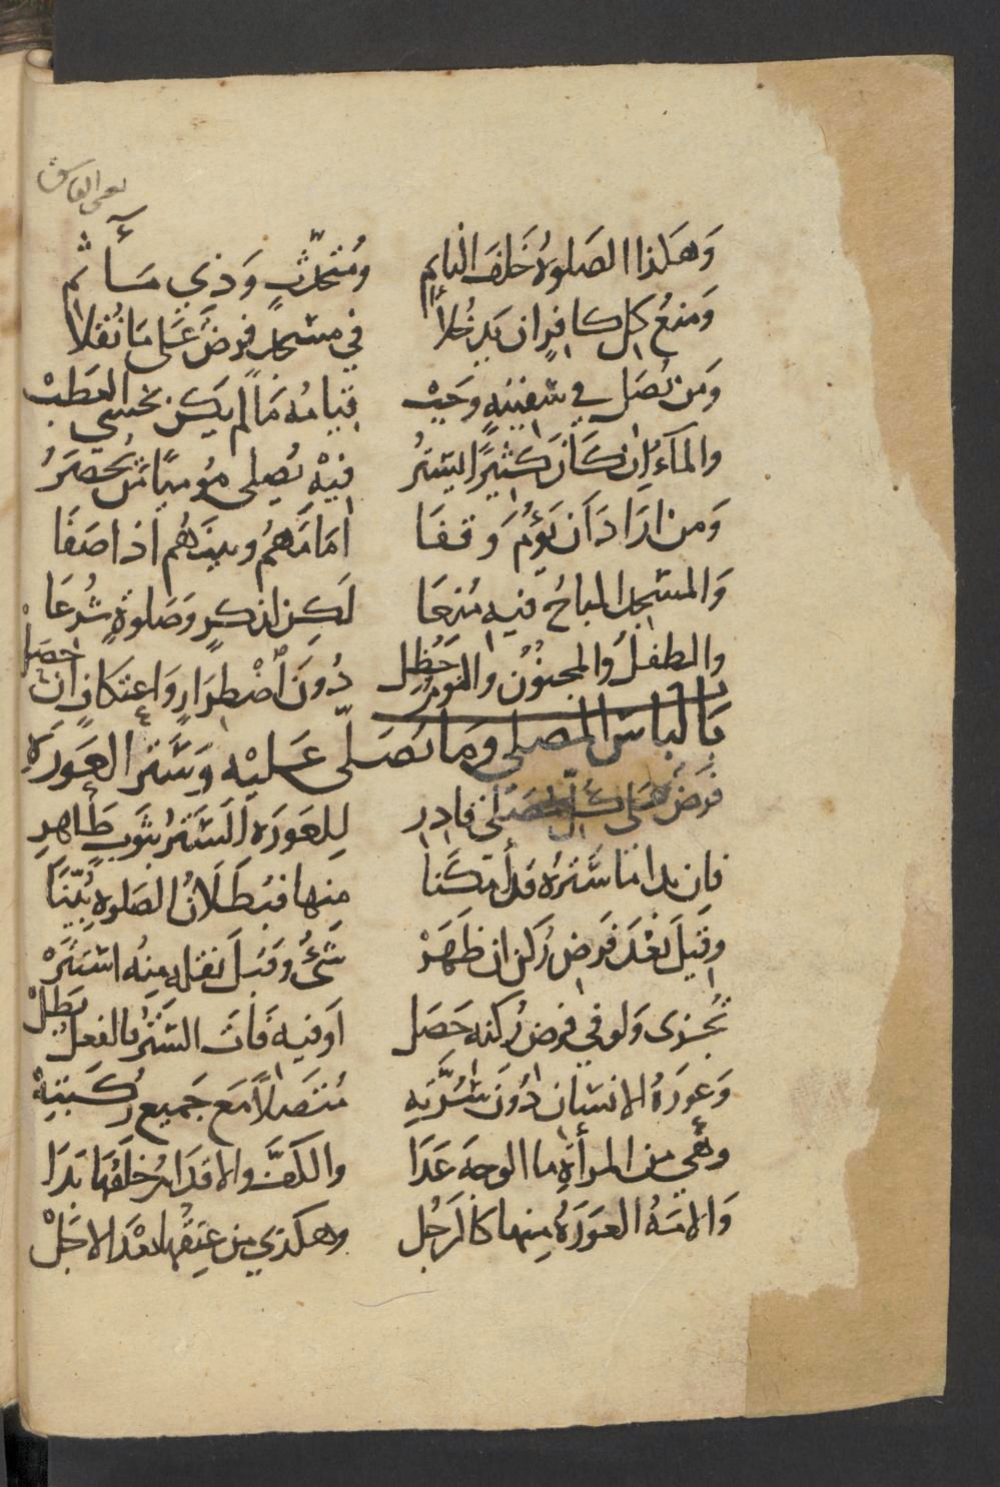 يعني الفاسق
وَهَكَذا الصَلوةُ خَلفَ النايم ومُتحدّثٍ وَذي مَآثم
وَمَنعُ كل كافرٍ ان يَدخُلاً في مسجدٍ فرضٌ عَلى مَا نُقلا
وَمَن يُصَل في سَفينَةٍ وَجَبْ قيَامُه مَا لم يَكن يخشى العَطبْ
والمَآءُ ان كَانَ كثيرًا يَستُرُ فيْهِ يُصلي مؤميًا مَن يُحصَرُ
وَمن ارَادَ اَن يَؤُمَ وَقفَا امَامَهمُ وبينَهُم اذا صَفَا
وَالمسجد المباحُ فيهِ مُنِعَا لَكِن لذكرٍ وَصَلوةٍ شُرعَا
والطفلُ والمجنوُن والنوم حُظِل دُونَ اُضْطِرَارٍ وَاعتكافٍ ان حصَلْ
بَا لبَاسَ المصلي وَمَا يُصَلّى عَليْهِ وَسَتر العَورَةِ
فَرضٌ عَلى كلّ مُصَلي قادر للعَورَة السَترُ بثَوبٍ طَاهرِ
فان بدا مَا سَترُهُ قد أمكنَا منها فبُطَلَانُ الصَلوةِ بُيّنَا
وَقيلَ بَعْدَ فَرضِ رُكن ان ظَهَرْ شَئٌ وَقَبلَ نَقله مِنهُ استَتَرْ
تُجْزى وَلو في فرض رُكنه حَصَل اَو فيه فَاتَ السَترُ بالفعل بَطَلْ
وَعَورَةُ الانسَان دُونَ سُرَّتِهِ مُتصلاً مَع جَميع رُكبَتِهْ
وهَي من المرأةِ مَا الوجهَ عَدَا والكَفَّ والاقدَامُ خلفُهَا بَدَا
وَالامَةُ العَورَةُ مِنها كَالرَجُل وهكذي من عتقها بعْدَ الاجَلْ